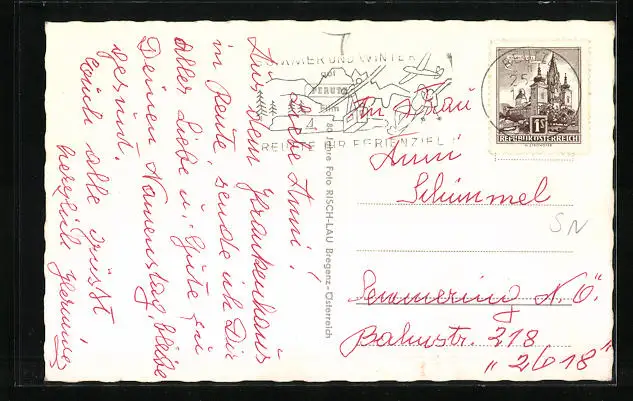 Liebe Anni!
Aus dem Krankenhaus
in Reute sende ich Dir
alles Liebe u. Gute zu
Deinem Namenstag, bleibe
gesund.
Euch alle grüsst
herzlich Hermine
80 Jahre Foto RISCH-LAU Bregenz-Österreich
SOMMER UND WINTER
auf
PERUTZ
Film
REUTTE IHR FERIENZIEL
REPUBLIK ÖSTERREICH
1S
An Frau
Anni
Schimmel
SN
Semmering N.Ö.
Bahnstr. 218
"2618"